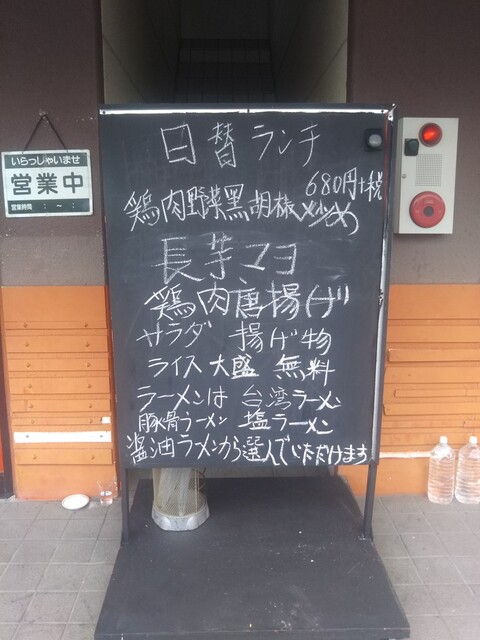 いらっしゃいませ
営業中
営業時間 : ~ :
日替ランチ
680円+税
鶏肉野菜黒胡椒炒め
長芋マヨ
鶏肉唐揚げ
サラダ 揚げ物
ライス 大盛 無料
ラーメンは 台湾ラーメン
豚骨ラーメン 塩ラーメン
醤油ラメンから選んでいただけます